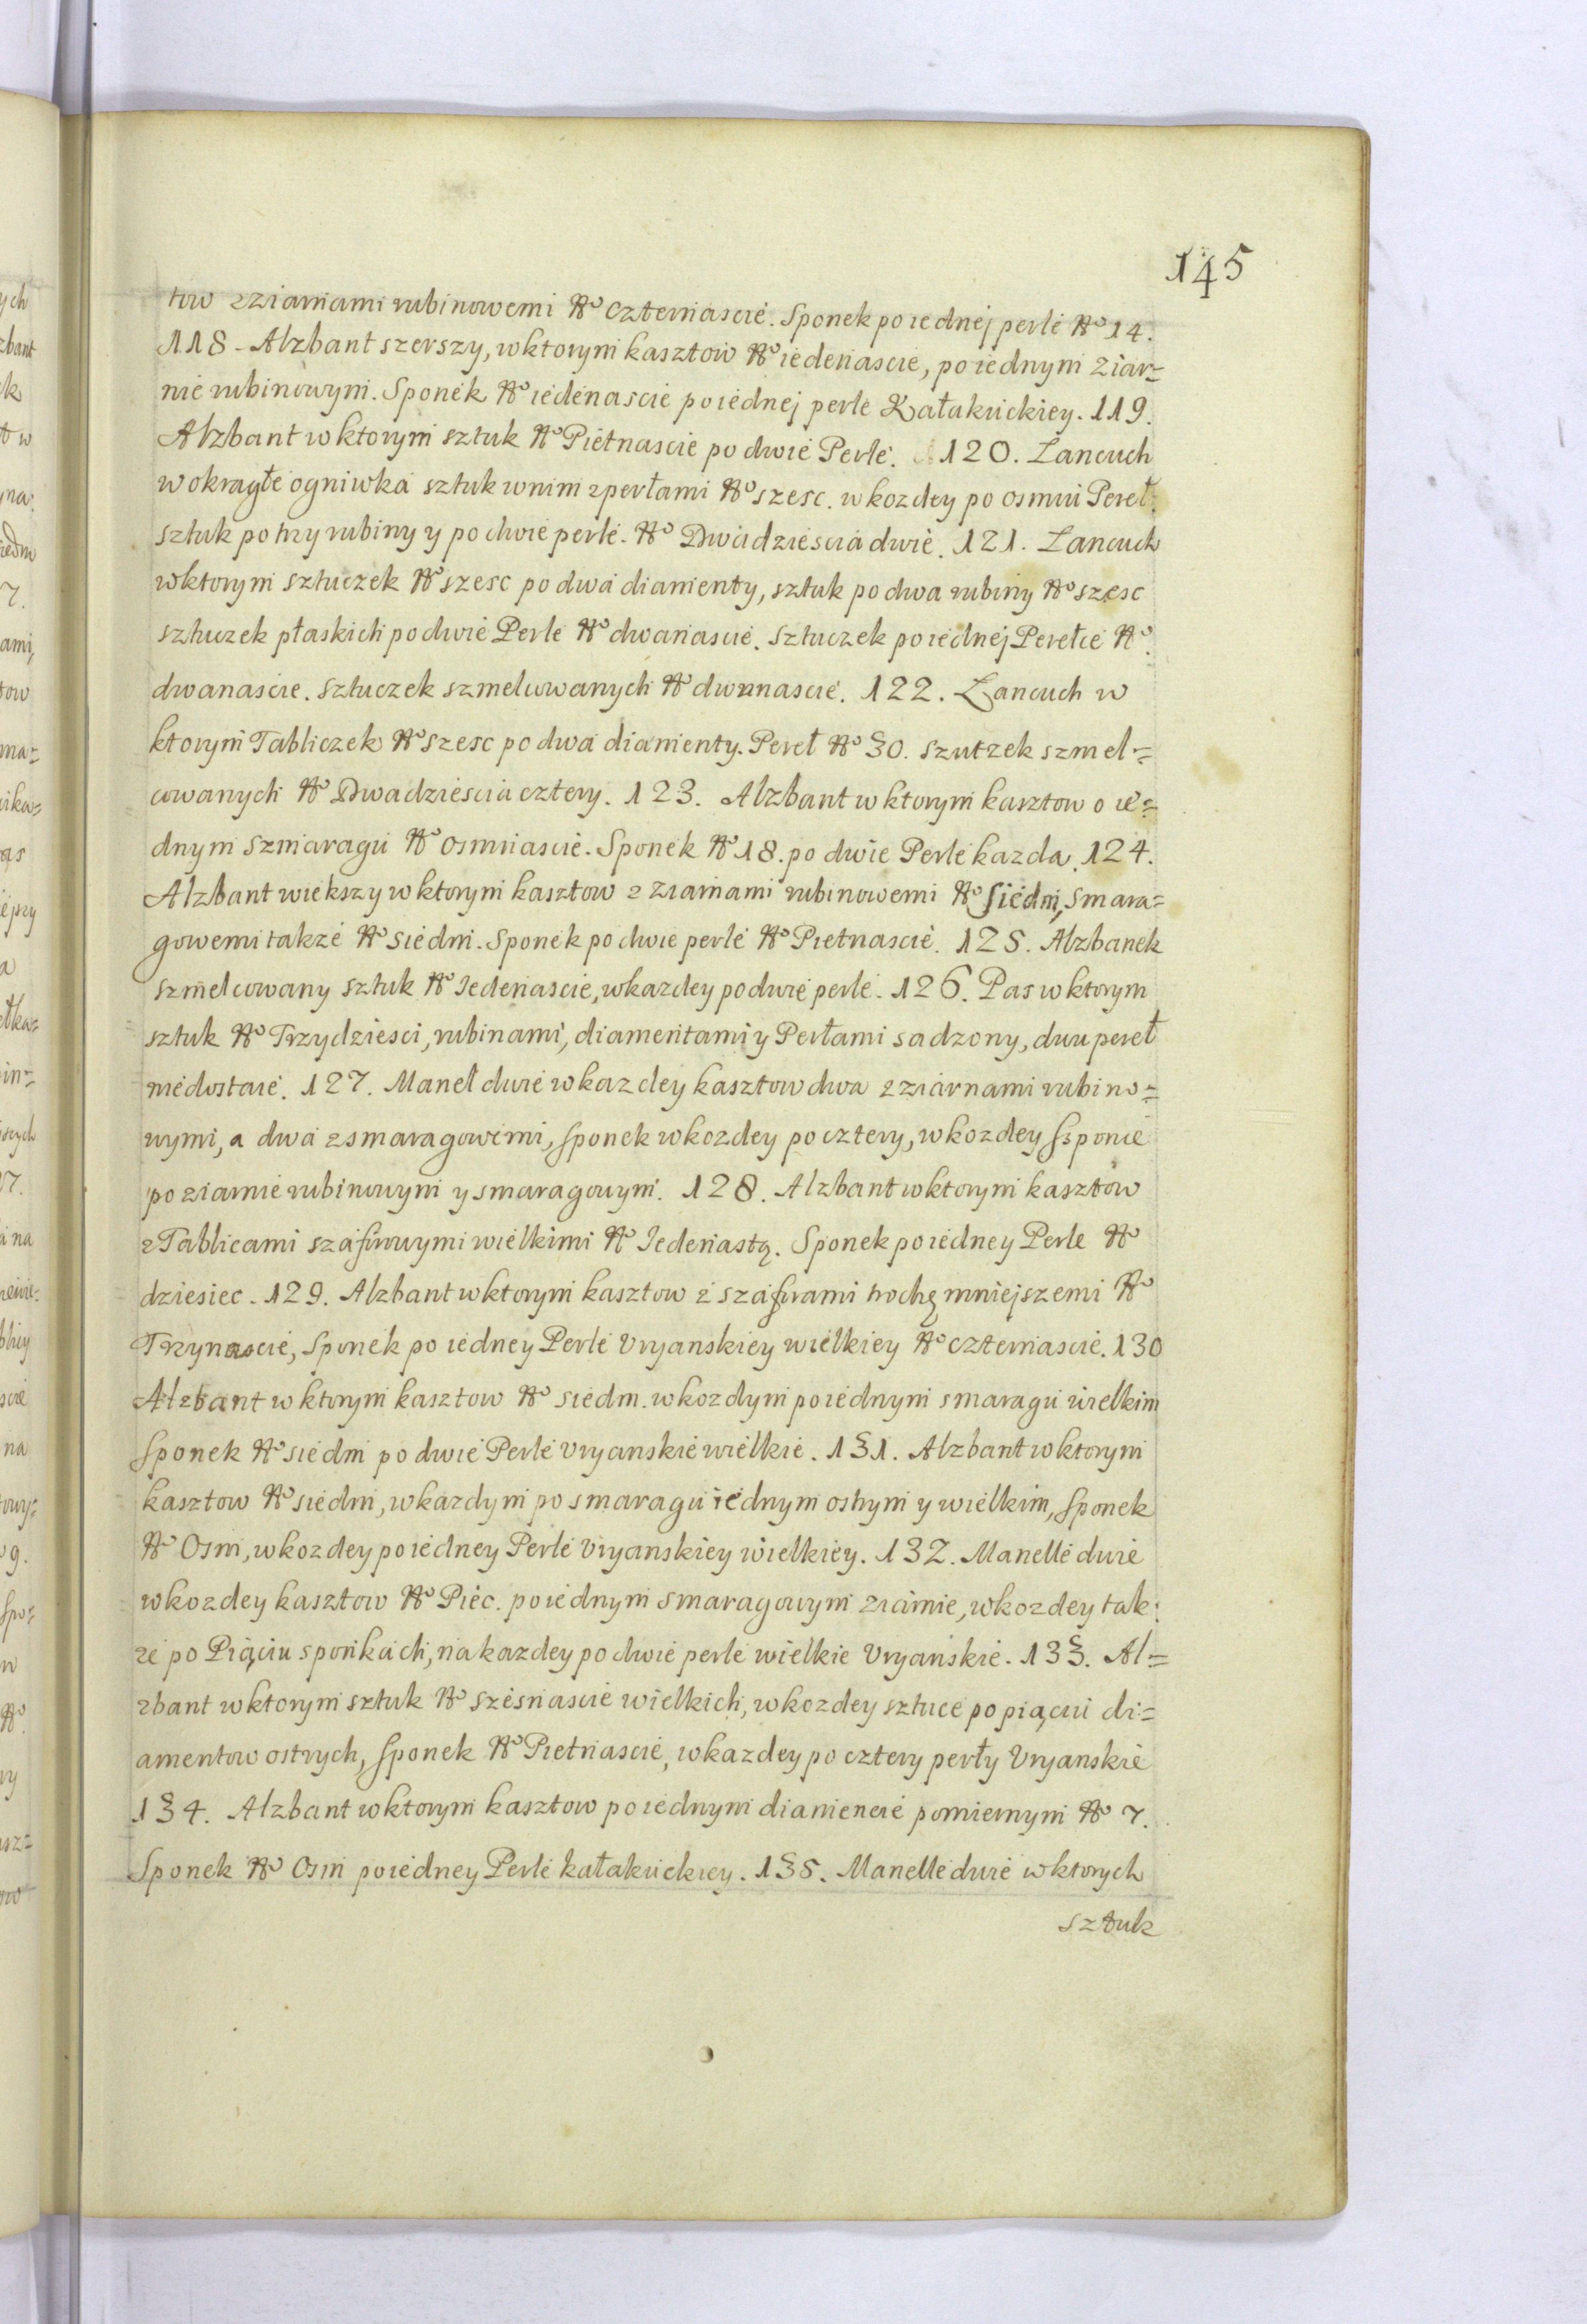 145
tow z ziarnami rubinowemi No czternascie. Sponek po iednej perle No 14.
118 - Alzbant szerszy, w ktorym kasztow No iedenascie, po iednym ziar=
nie rubinowym. Sponek No iedenascie po iednej perle Kałakuckiey. 119.
Alzbant w ktorym sztuk No Pietnascie po dwie Perle. 120. Lancuch
w okragłe ogniwka sztuk w nim z perłami No szesc. w kozdey po osmiu Pereł.
sztuk po trzy rubiny y po dwie perle. No Dwadziescia dwie. 121. Lancuch
w ktorym sztuczek No szesc po dwa diamenty, sztuk po dwa rubiny No szesc
sztuczek płaskich po dwie Perle No dwanascie. sztuczek po iednej Perełce No.
dwanascie. sztuczek szmelcowanych No dwanascie. 122. Lancuch w
ktorym Tabliczek No szesc po dwa diamenty. Pereł No 30. szutzek szmel=
cowanych No Dwadziescia cztery. 123. Alzbant w ktorym kasztow o ie=
dnym szmaragu No osmnascie. Sponek No 18. po dwie Perle kazda. 124.
Alzbant wiekszy w ktorym kasztow z ziarnami rubinowemi No siedm, smara=
gowemi takze No siedm. Sponek po dwie perle No Pietnascie. 125. Alzbanek
szmelcowany sztuk No Iedenascie, w kazdey po dwie perle. 126. Pas w ktorym
sztuk No Trzydziesci, rubinami, diamentami y Perłami sadzony, dwu pereł
niedostaie. 127. Maneł dwie w kazdey kasztow dwa z ziarnami rubino=
wymi, a dwa z smaragowemi, sponek w kozdey po cztery, w kozdey sponie
po ziarnie rubinowym y smaragowym. 128. Alzbant w ktorym kasztow
z Tablicami szafirowymi wielkimi No Iedenastą. Sponek po iedney Perle No
dziesiec. 129. Alzbant w ktorym kasztow z szafirami trochę mniejszemi No
Trzynascie, Sponek po iedney Perle Vryanskiey wielkiey No czternascie. 130
Alzbant w ktorym kasztow No siedm. w kozdym po iednym smaragu wielkim
Sponek No siedm po dwie Perle Vryanskie wielkie. 131. Alzbant w ktorym
kasztow No siedm, w kazdym po smaragu iednym ostrym y wielkim, sponek
No Osm, w kozdey po iedney Perle Vryanskiey wielkiey. 132. Manelle dwie
w kozdey kasztow No Piec. po iednym smaragowym ziarnie, w kozdey tak:
ze po Piąciu sponkach, na kazdey po dwie perle wielkie Vryanskie. 133. Al=
zbant w ktorym sztuk No szesnascie wielkich, w kozdey sztuce po piąciu di=
amentow ostrych, sponek No Pietnascie, w kazdey po cztery perły Vryanskie
134. Alzbant w ktorym kasztow po iednym diamencie pomiernym No 7.
Sponek No Osm po iedney Perle kałakuckiey. 135. Manelle dwie w ktorych
sztuk